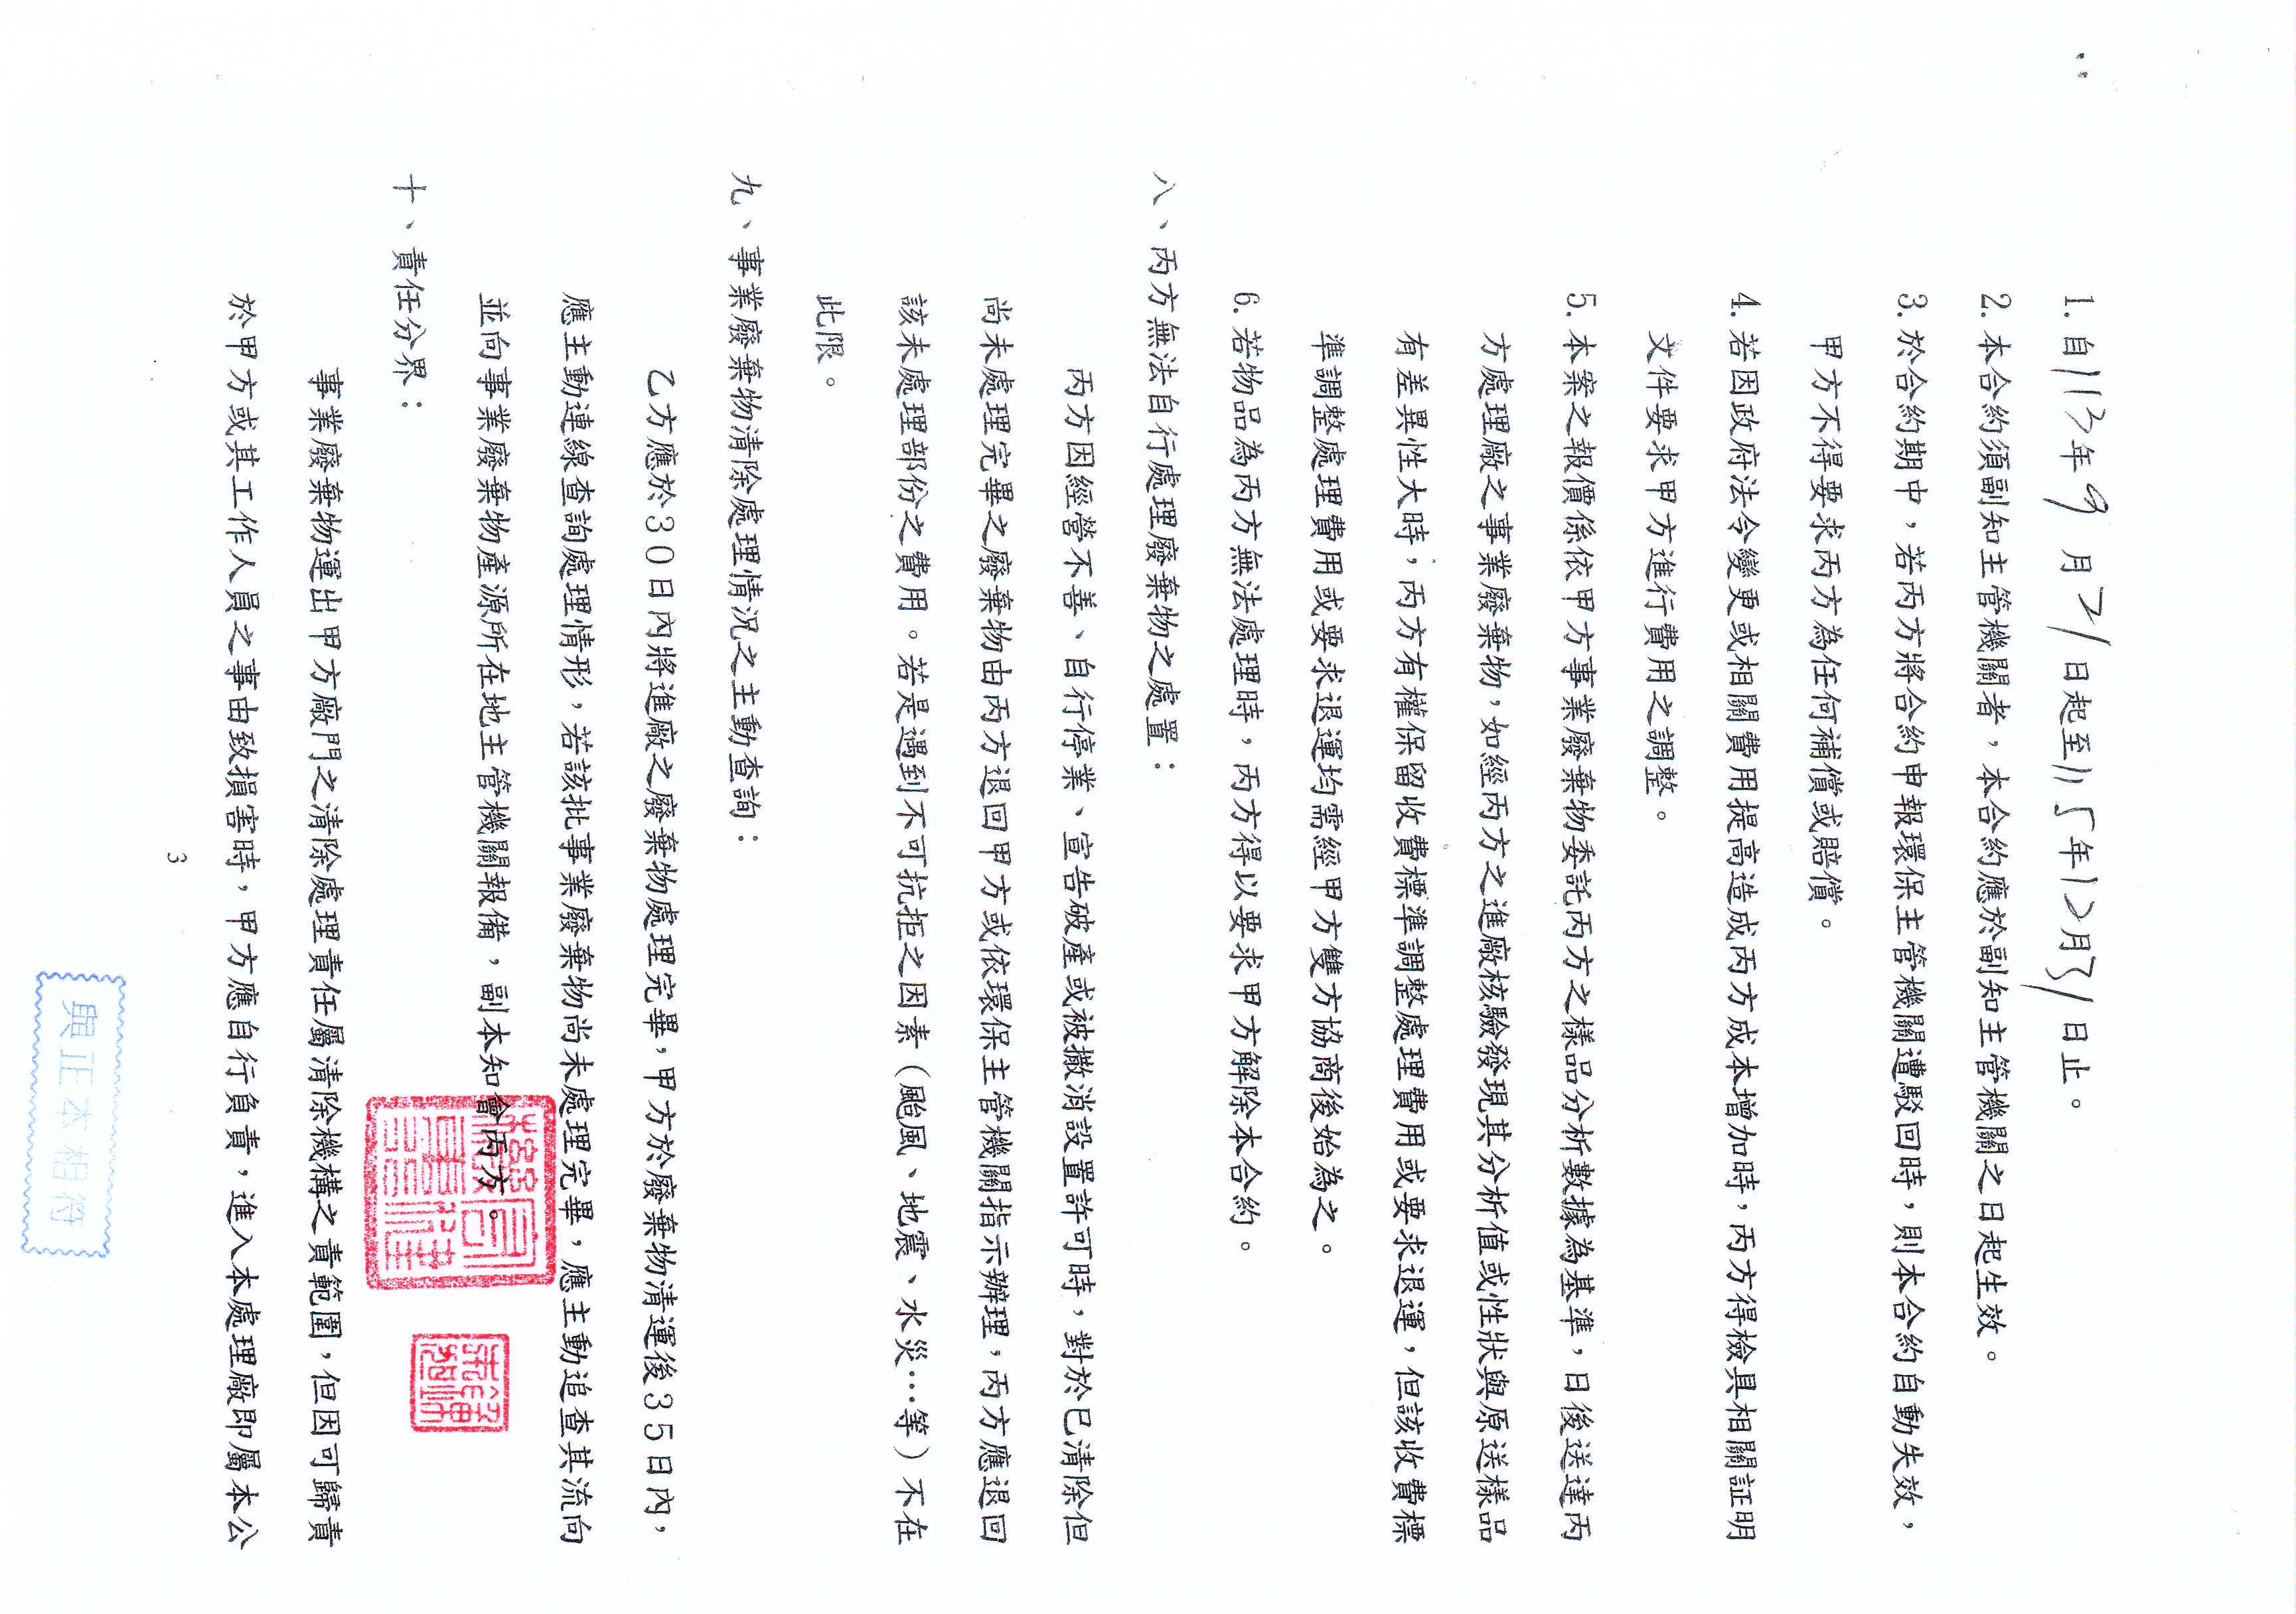 1. 自113年9月21日起至115年12月31日止。
2. 本合約須副知主管機關者，本合約應於副知主管機關之日起生效。
3. 於合約期中，若丙方將合約申報環保主管機關遭駁回時，則本合約自動失效，
甲方不得要求丙方為任何補償或賠償。
4. 若因政府法令變更或相關費用提高造成丙方成本增加時，丙方得檢具相關証明
文件要求甲方進行費用之調整。
5. 本案之報價係依甲方事業廢棄物委託丙方之樣品分析數據為基準，日後送達丙
方處理廠之事業廢棄物，如經丙方之進廠核驗發現其分析值或性狀與原送樣品
有差異性大時，丙方有權保留收費標準調整處理費用或要求退運，但該收費標
準調整處理費用或要求退運均需經甲方雙方協商後始為之。
6. 若物品為丙方無法處理時，丙方得以要求甲方解除本合約。
八、丙方無法自行處理廢棄物之處置：
丙方因經營不善、自行停業、宣告破產或被撤消設置許可時，對於已清除但
尚未處理完畢之廢棄物由丙方退回甲方或依環保主管機關指示辦理，丙方應退回
該未處理部份之費用。若是遇到不可抗拒之因素（颱風、地震、水災…等）不在
此限。
九、事業廢棄物清除處理情況之主動查詢：
乙方應於30日內將進廠之廢棄物處理完畢，甲方於廢棄物清運後35日內，
應主動連線查詢處理情形，若該批事業廢棄物尚未處理完畢，應主動追查其流向
並向事業廢棄物產源所在地主管機關報備，副本知會丙方。
十、責任分界：
事業廢棄物運出甲方廠門之清除處理責任屬清除機構之責範圍，但因可歸責
於甲方或其工作人員之事由致損害時，甲方應自行負責，進入本處理廠即屬本公
3
與正本相符